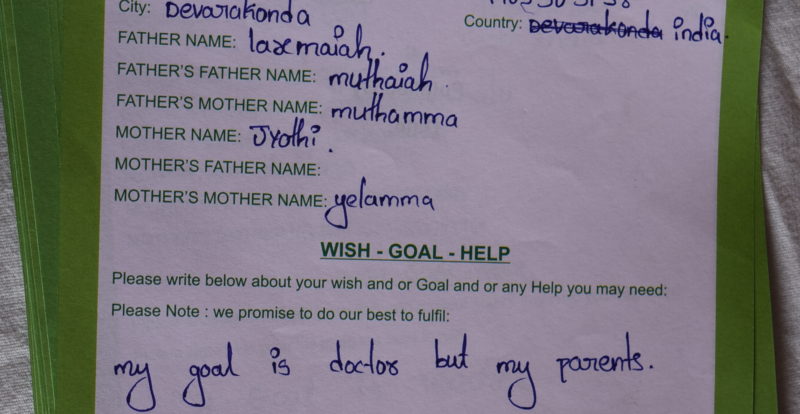 City: Devarakonda
Country: Devarakonda india.
FATHER NAME: laxemaiah.
FATHER'S FATHER NAME: muthaiah.
FATHER'S MOTHER NAME: muthamma
MOTHER NAME: Jyothi.
MOTHER'S FATHER NAME:
MOTHER'S MOTHER NAME: yelamma
WISH - GOAL - HELP
Please write below about your wish and or Goal and or any Help you may need:
Please Note : we promise to do our best to fulfil:
my goal is doctor but my parents.